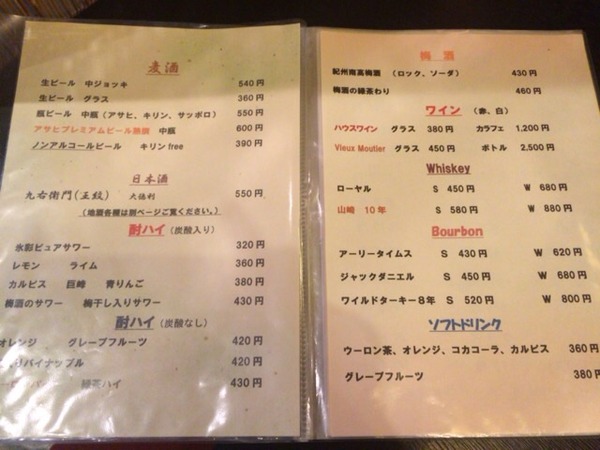 麦酒
生ビール 中ジョッキ 540円
生ビール グラス 360円
瓶ビール 中瓶 (アサヒ、キリン、サッポロ) 550円
アサヒプレミアムビール熟撰 中瓶 600円
ノンアルコールビール キリンfree 390円
日本酒
九右衛門(正紋) 大徳利 550円
(地酒各種は別ページご覧ください。)
酎ハイ (炭酸入り)
氷彩ピュアサワー 320円
レモン ライム 360円
カルピス 巨峰 青りんご 380円
梅酒のサワー 梅干し入りサワー 430円
酎ハイ (炭酸なし)
オレンジ グレープフルーツ 420円
パイナップル 420円
緑茶ハイ 430円
梅酒
紀州南高梅酒 (ロック、ソーダ) 430円
梅酒の緑茶わり 460円
ワイン (赤、白)
ハウスワイン グラス 380円 カラフェ 1,200円
Vieux Moutier グラス 450円 ボトル 2,500円
Whiskey
ローヤル S 450円 W 680円
山崎 10年 S 580円 W 880円
Bourbon
アーリータイムス S 430円 W 620円
ジャックダニエル S 450円 W 680円
ワイルドターキー8年 S 520円 W 800円
ソフトドリンク
ウーロン茶、オレンジ、コカコーラ、カルピス 360円
グレープフルーツ 380円